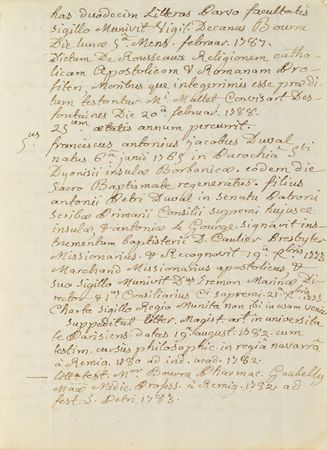 has duodecim Litteras Parvo facultatis
sigillo Munivit Vigil. Decanus Bourru
Die lunæ 5ª Mens. februar. 1787.
Dictum De Rousseaux Religionem catho-
licam Apostolicam & Romanam Pro-
fiteri, Moribus que integerrimis esse præ di-
tum testantur Mr. Mallet
fontaines Die 20ª februar. 1788.
25um ætatis annum percurrit.
5us franciscus antonius jacobus Duval
natus 6ª junii 1765 in Parochia Sti
Dyonisii insulæ Borbonicæ, eodem die
Sacro Baptismate regeneratus. filius
antonii Petri Duval in Senatu Patroni
Scribæ Primarii Consilii supremi hujusce
insulæ, & antoniæ Le Gouge. signavit ins-
trumentum baptisterii D. Caulier Presbyter
Missionarius. & Recognovit 19ª 1773
Marchand Missionarius apostolicus, &
suo Sigillo Munivit Dus Simon Marinæ Di-
rector & 1us Consiliarius D. suprem. 21ª 1775.
Charta Sigillo Regio Munita non ibi in usum venit
Suppeditat litter. Magist. art. in universita-
te Parisiens. datas 19ª august. 1782. cum
testim. cursus philosophic. in regiâ navarrâ
à Remig. 1780 ad ind. acad. 1782.
litt & test. Mri Bourru Pharmac. Goubelly
Mat Medic. Profess. à Remig. 1782, ad
fest. S. Petri 1783.